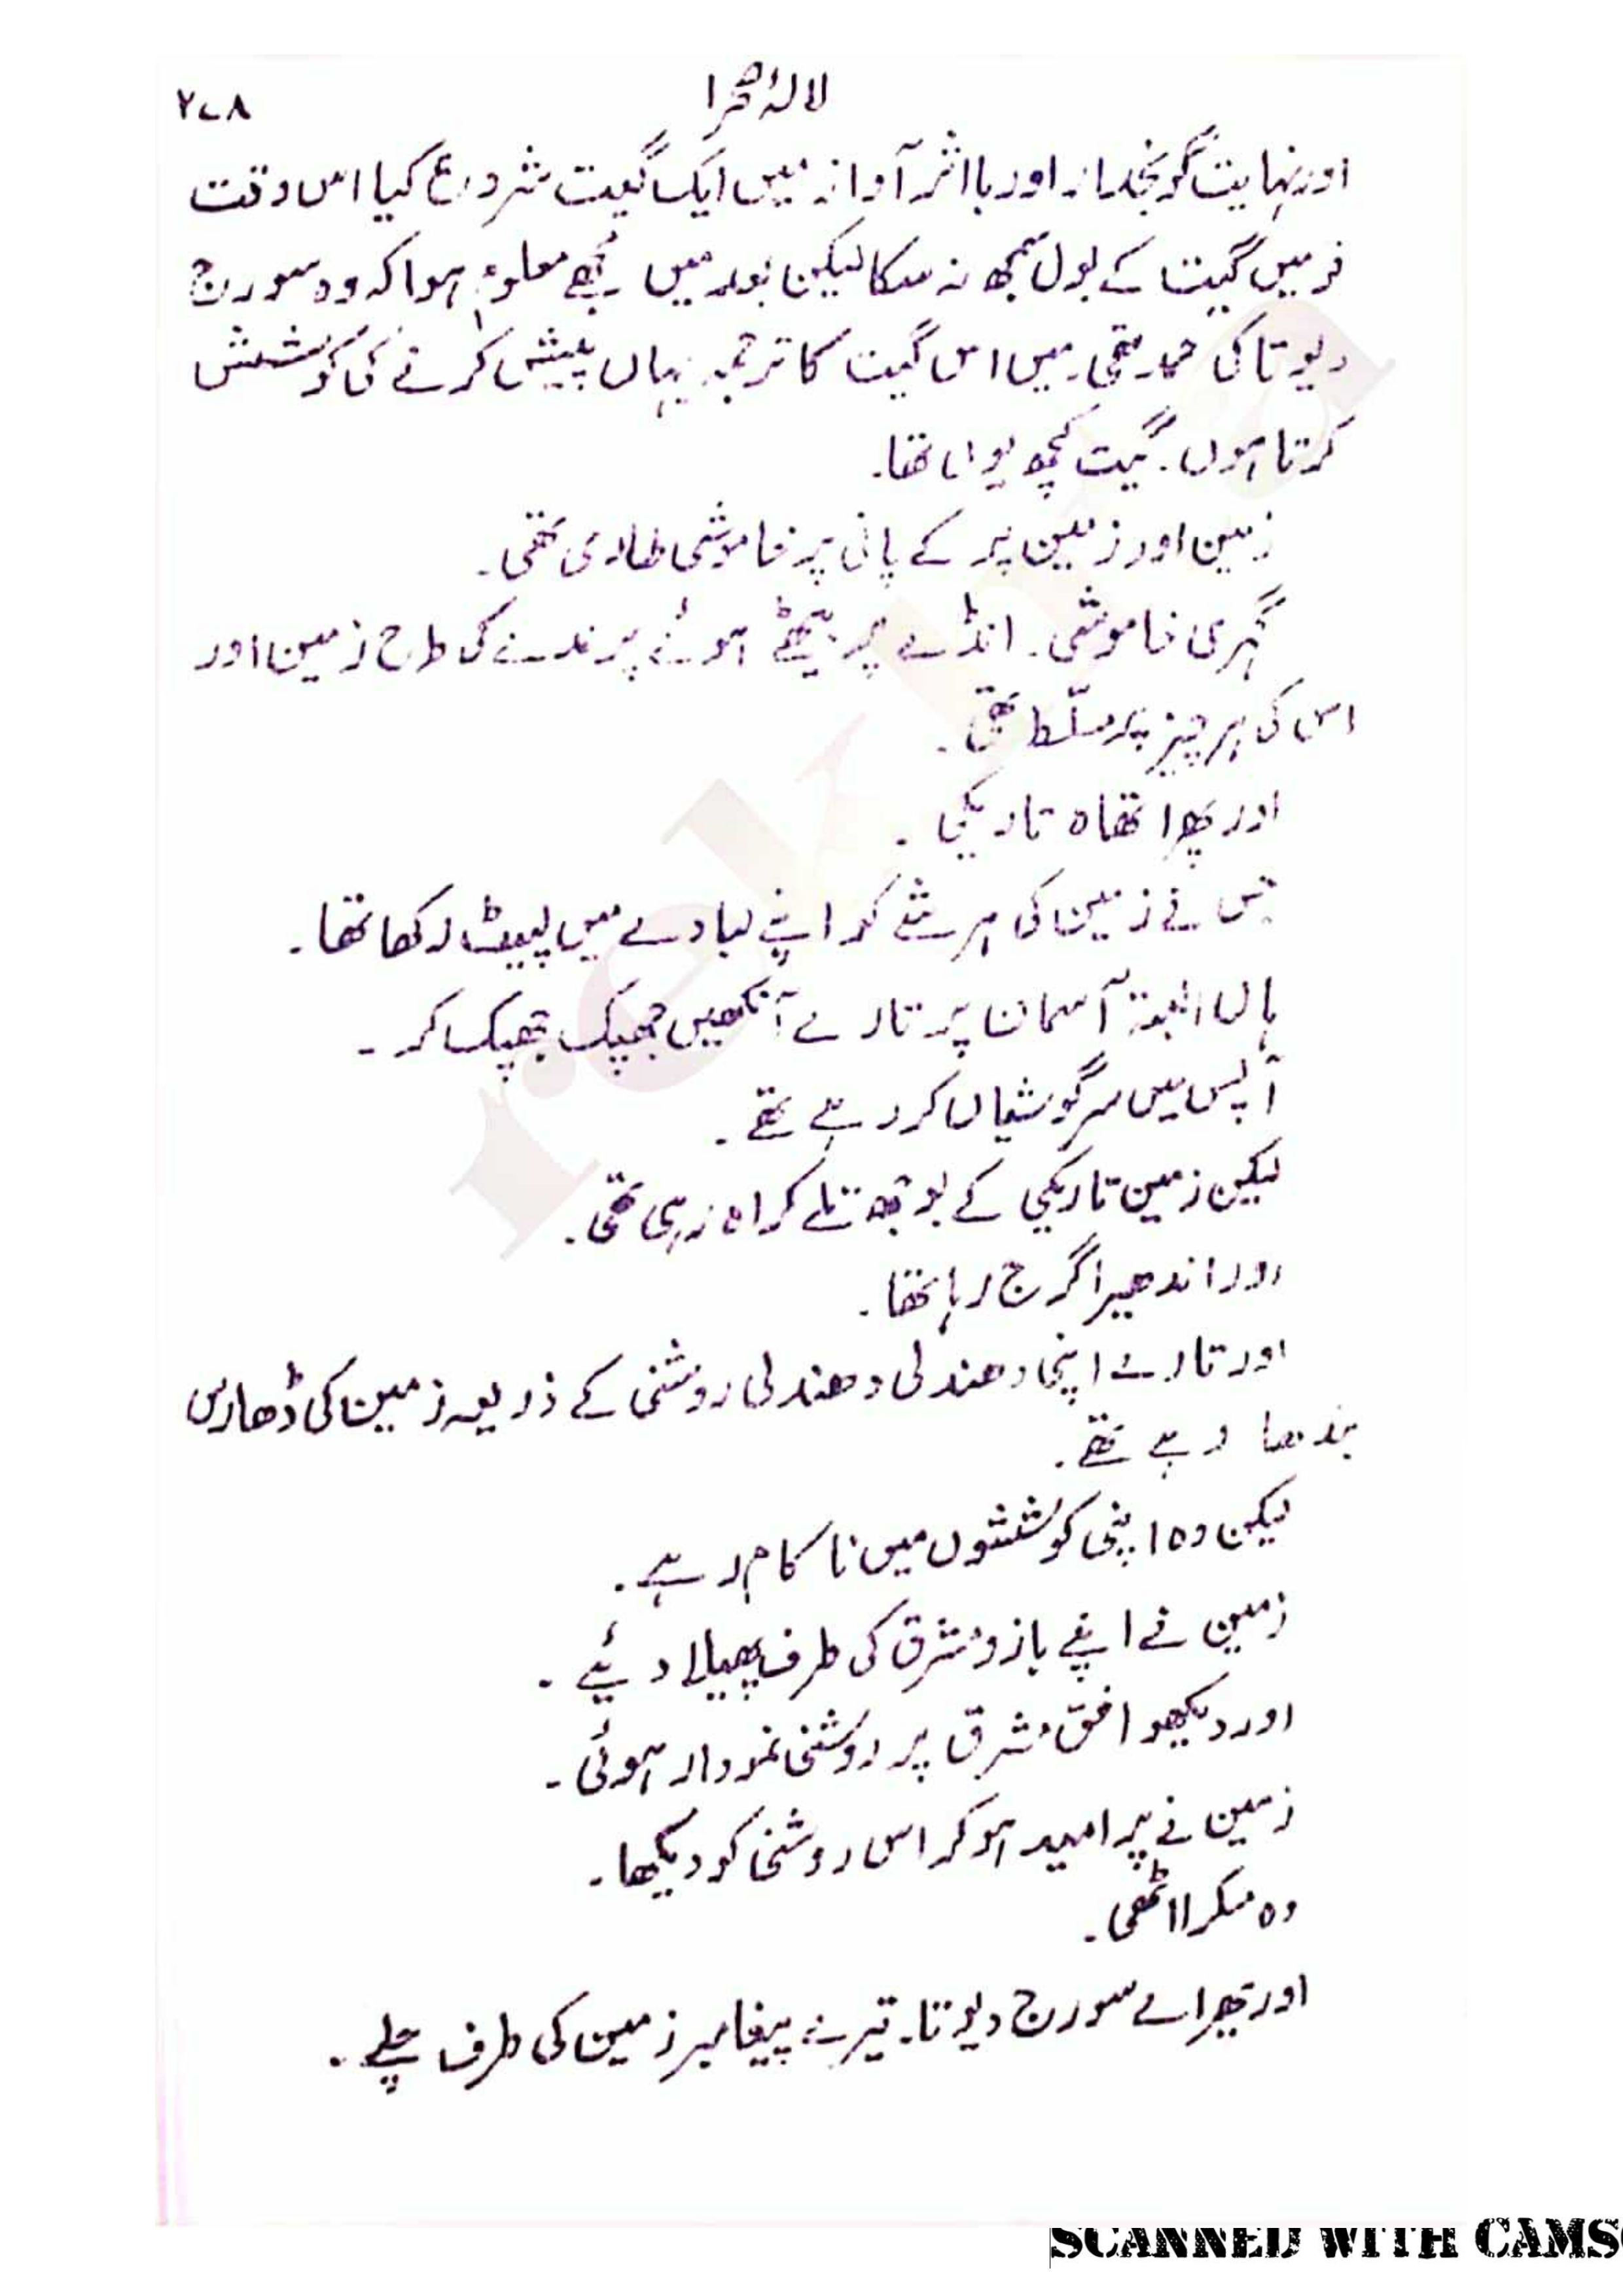 لالۂ صحرا
۲۷۸
اور نہایت گونجدار اور با اثر آواز میں ایک گیت شروع کیا اس وقت
تو میں گیت کے بول سمجھ نہ سکا لیکن بعد میں مجھے معلوم ہوا کہ وہ سورج
دیوتا کی حمد تھی میں اس گیت کا ترجمہ یہاں پیش کرنے کی کوشش
کرتا ہوں۔ گیت کچھ یوں تھا۔
زمین اور زمین پر کے پانی پر خاموشی طاری تھی۔
گہری خاموشی۔ انڈے پر بیٹھے ہوئے پرندے کی طرح زمین اور
اس کی ہر چیز پر مسلّط تھی۔
اور پھر اتھاہ تاریکی۔
جس نے زمین کی ہر شے کو اپنے لبادے میں لپیٹ رکھا تھا۔
ہاں البتہ آسمان پر تارے آنکھیں جھپک جھپک کر۔
آپس میں سرگوشیاں کر رہے تھے۔
لیکن زمین تاریکی کے بوجھ تلے کراہ رہی تھی۔
اور اندھیرا گرج رہا تھا۔
اور تارے اپنی دھندلی دھندلی روشنی کے ذریعہ زمین کی ڈھارس
بندھا رہے تھے۔
لیکن وہ اپنی کوششوں میں ناکام رہے۔
زمین نے اپنے بازو مشرق کی طرف پھیلا دئیے۔
اور دیکھو افق مشرق پر روشنی نمودار ہوئی۔
زمین نے پر امید ہو کر اس روشنی کو دیکھا۔
وہ مسکرا اٹھی۔
اور پھر اے سورج دیوتا۔ تیرے پیغامبر زمین کی طرف چلے۔
SCANNED WITH CAMS